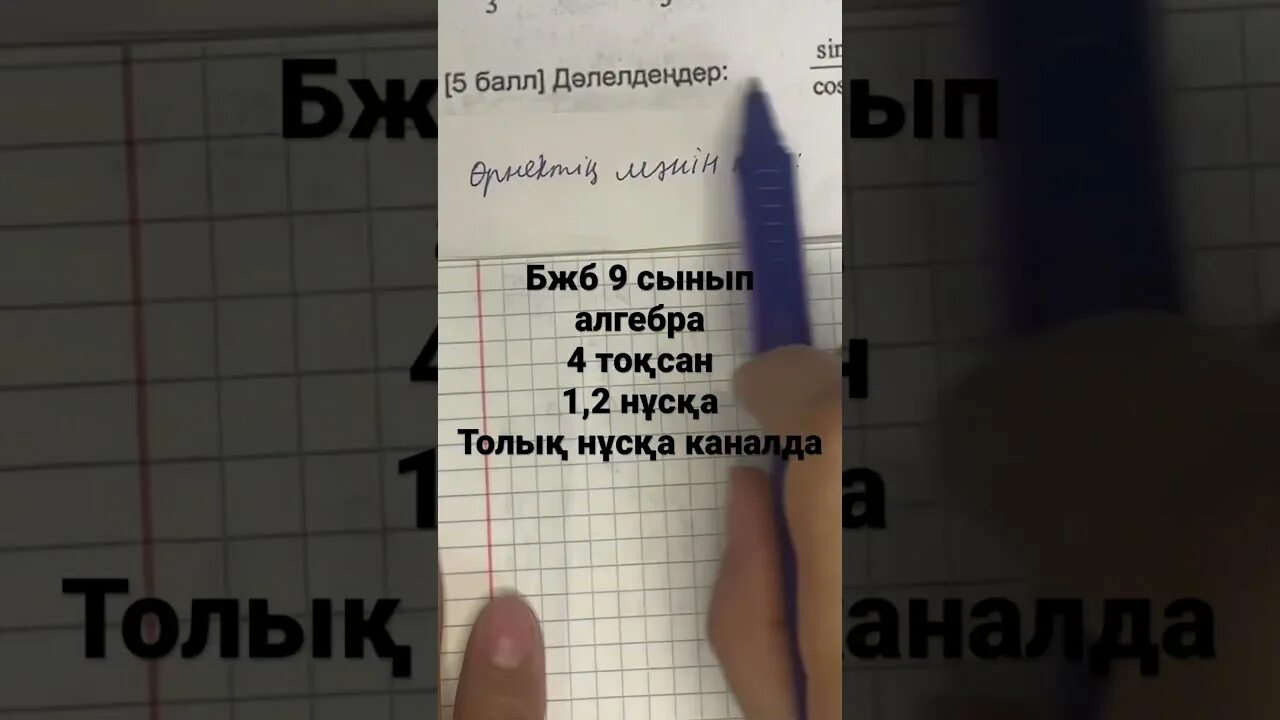 3
[5 балл] Дәлелдеңдер:
sin
cos
Өрнектің мәнін
Бжб 9 сынып
алгебра
4 тоқсан
1,2 нұсқа
Толық нұсқа каналда